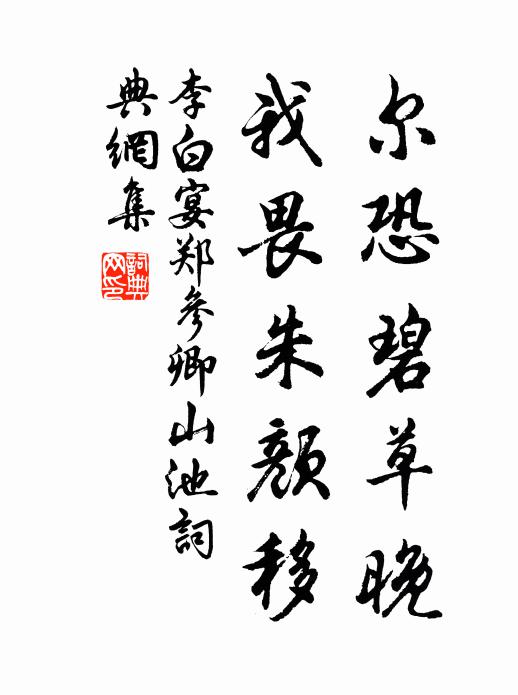 尔恐碧草晚
我畏朱颜移
李白宴郑參卿山池詞
典網集
詞典
网印